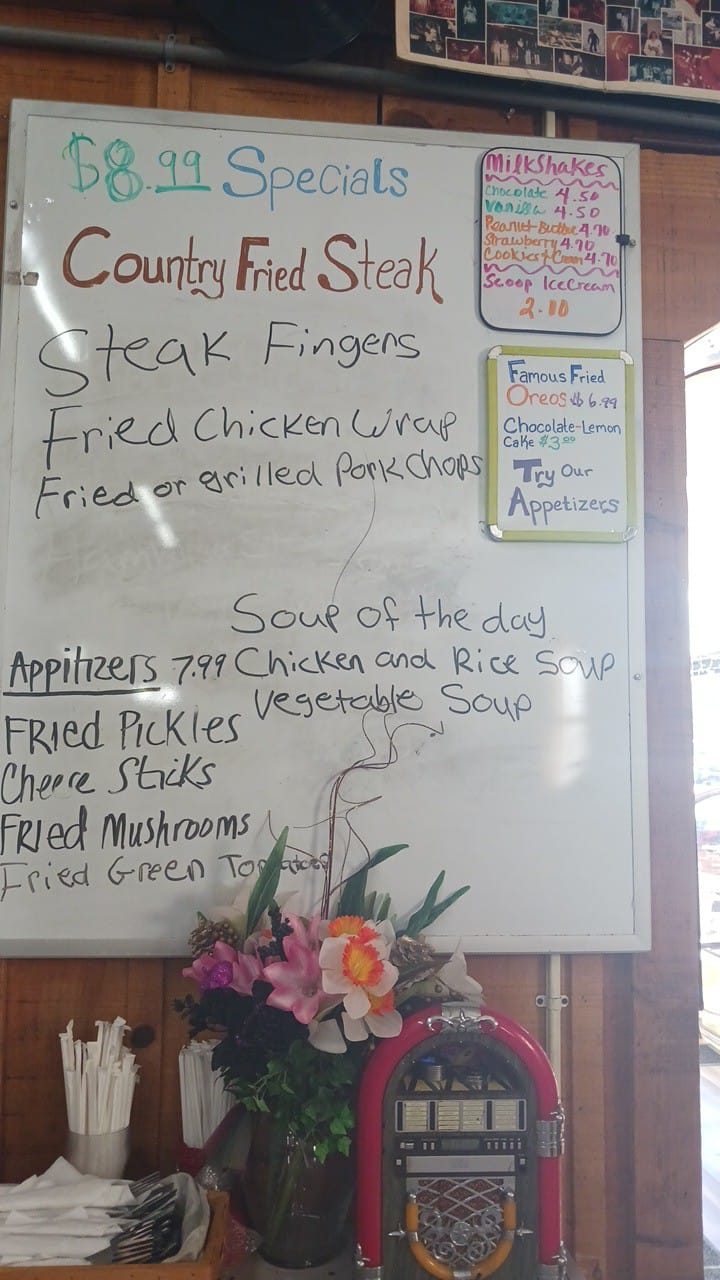 $8.99 Specials
Country Fried Steak
Steak Fingers
Fried Chicken Wrap
Fried or grilled Pork Chops
MilkShakes
Chocolate 4.50
Vanilla 4.50
Peanut-Butter 4.70
Strawberry 4.70
Cookies & Cream 4.70
Scoop IceCream
2.10
Famous Fried
Oreos $ 6.99
Chocolate-Lemon
Cake $3.00
Try Our
Appetizers
Soup of the day
Chicken and Rice Soup
Vegetable Soup
Appitizers 7.99
Fried Pickles
Cheese Sticks
Fried Mushrooms
Fried Green Tomatoes